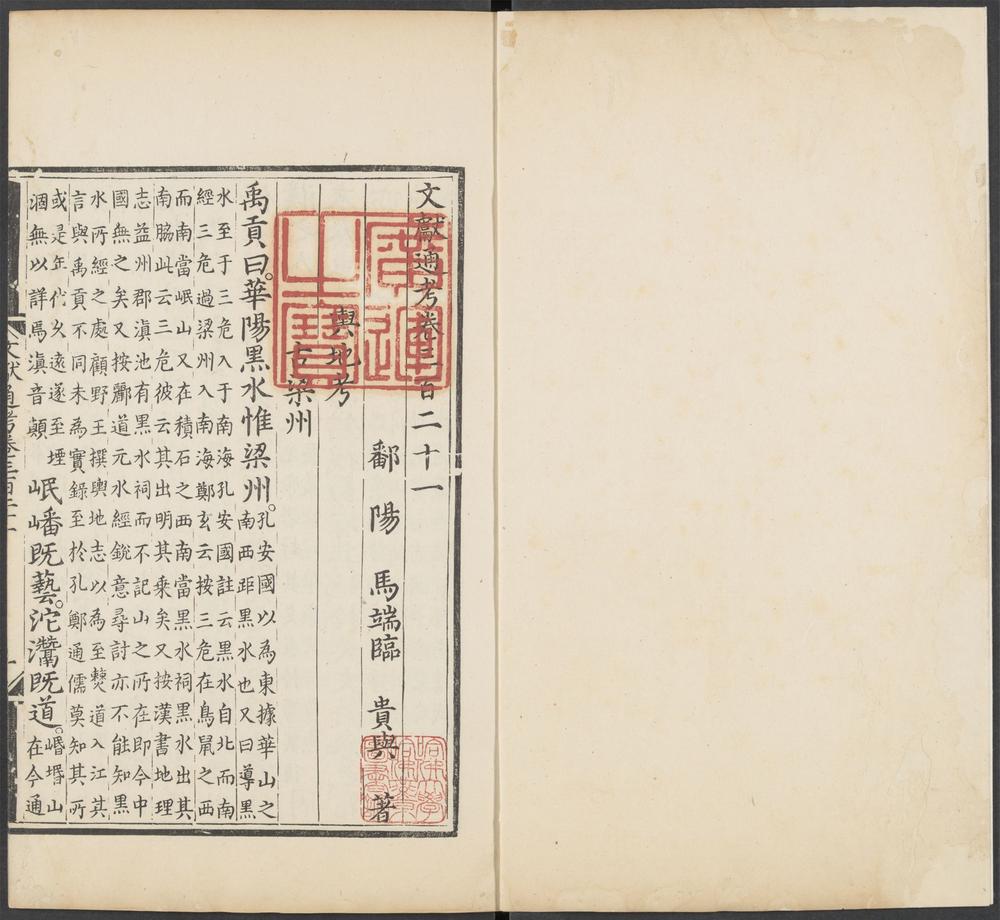 文獻通考卷三百二十一
鄱陽 馬端臨 貴與 著
輿地考
古梁州
禹貢曰。華陽黑水惟梁州。孔安國以為東據華山之
南西距黑水也又曰導黑
水至于三危入于南海孔安國註云黑水自北而南
經三危過梁州入南海鄭玄云按三危在鳥鼠之西
而南當岷山又在積石之西南當黑水祠黑水出其
南脇此云三危彼云其出明其乖矣又按漢書地理
志益州郡滇池有黑水祠而不記山之所在即今中
國無之矣又按酈道元水經銳意尋討亦不能知黑
水所經之處顧野王撰輿地志以為至僰道入江其
言與禹貢不同未為實錄至於孔鄭通儒莫知其所
或是年代久遠遂至堙
涸無以詳焉滇音顛
岷嶓既藝。沱灊既道。
山
在今通
文獻通考卷三百二十一
廣運之寶